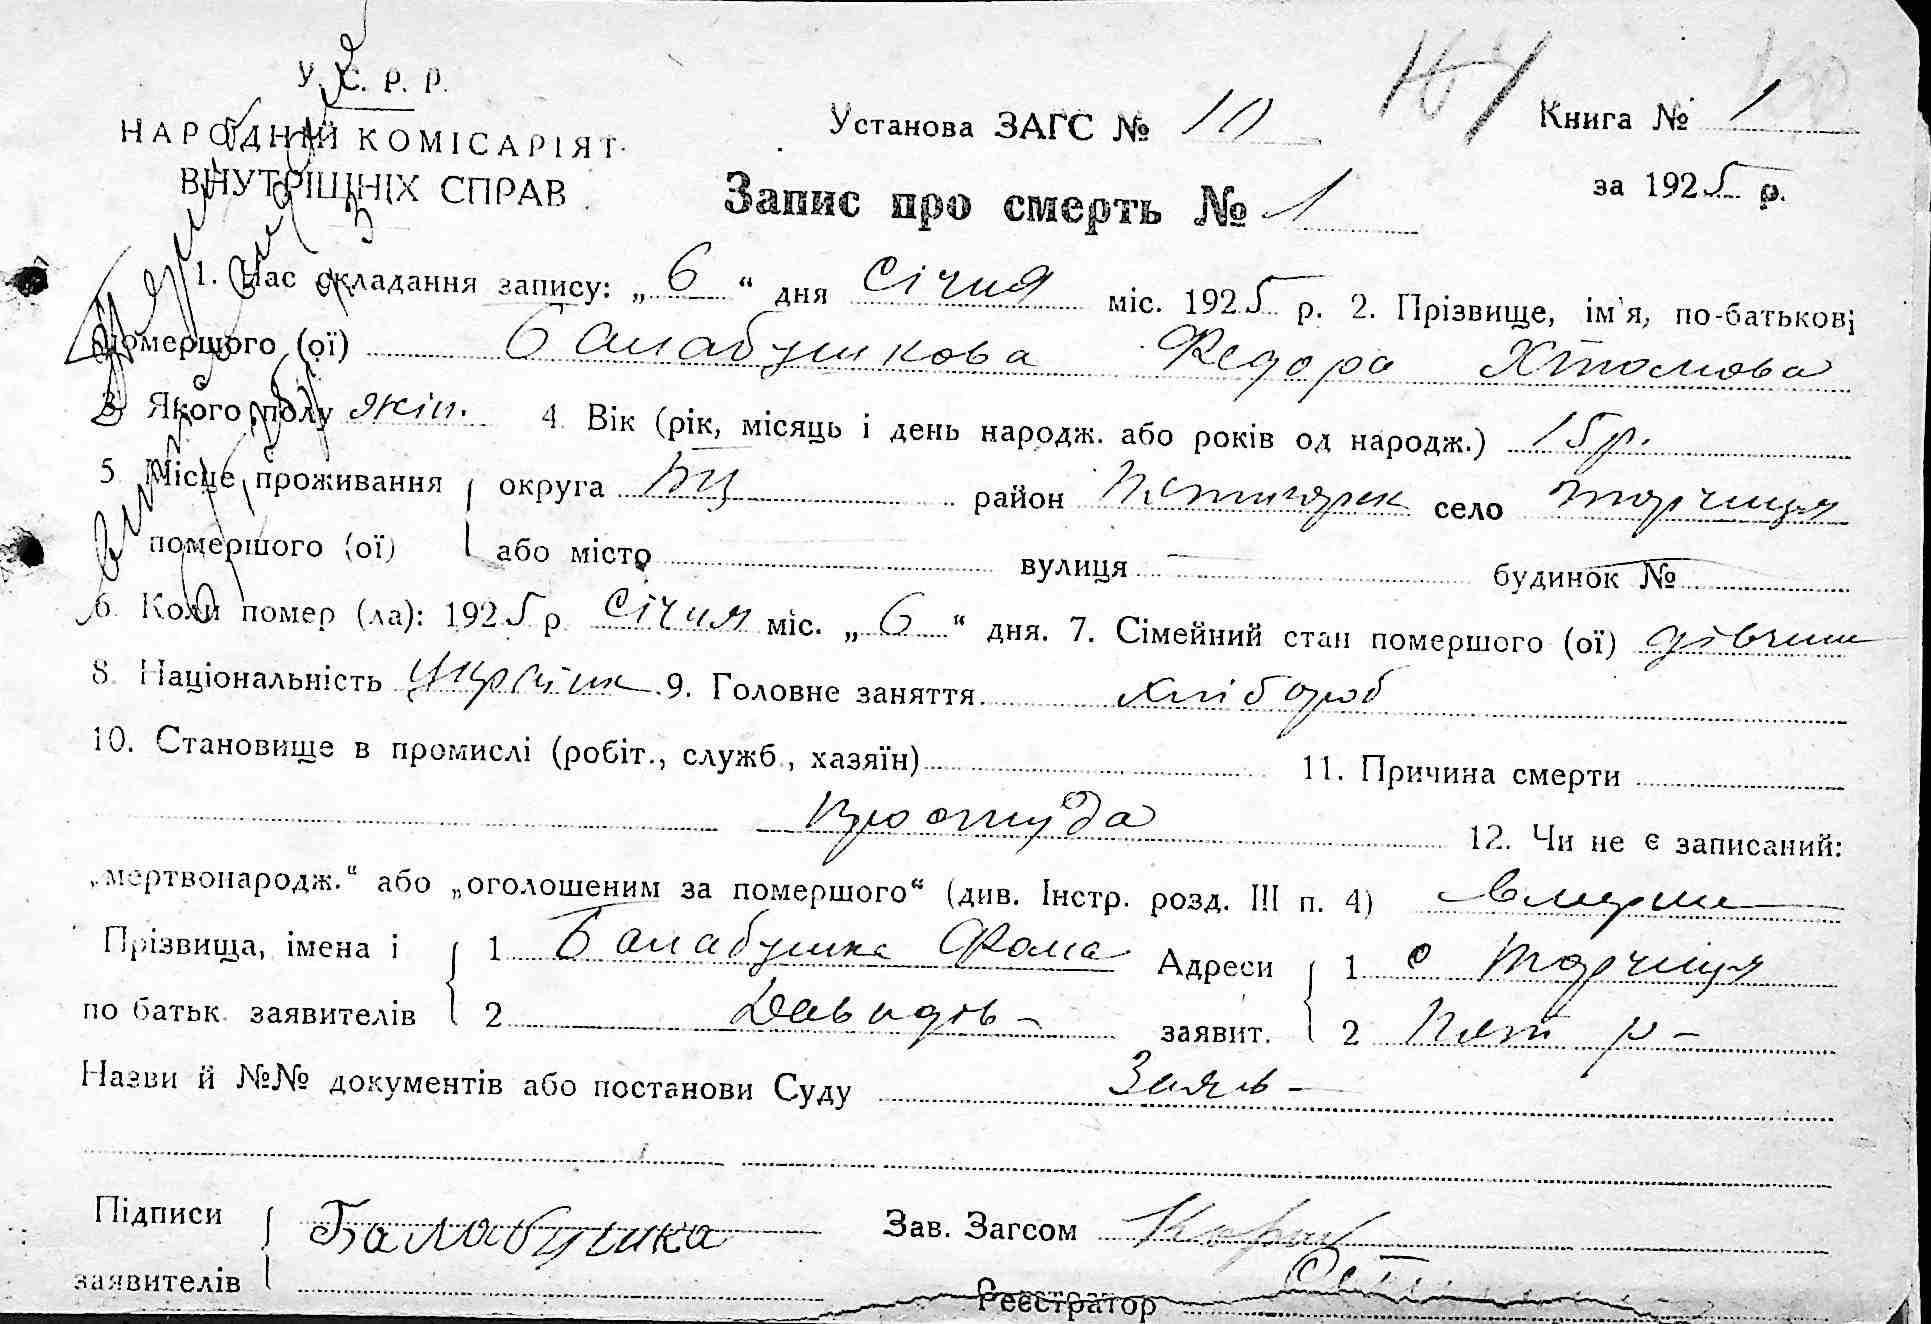 У. С. Р. Р.
НАРОДНІЙ КОМІСАРІЯТ
ВНУТРІШНІХ СПРАВ
Установа ЗАГС № 10
Книга № 1
за 1925 р.
Запис про смерть № 1
1. Час складання запису: „6“ дня Січня міс. 1925 р. 2. Прізвище, ім'я, по-батькові
помершого (ої) Балабушкова Федора Хтомова
3. Якого полу жін. 4. Вік (рік, місяць і день народж. або років од народж.) 15 р.
5. Місце проживання округа БЦ район Пятигорск село Торчиця
помершого (ої) або місто вулиця будинок №
6. Коли помер (ла): 1925 р. Січня міс. „6“ дня. 7. Сімейний стан помершого (ої) дівчина
8. Національність Україн 9. Головне заняття хлібороб
10. Становище в промислі (робіт., служб., хазяїн) 11. Причина смерти
простуда 12. Чи не є записаний:
„мертвонародж.“ або „оголошеним за помершого“ (див. Інстр. розд. III п. 4) вмерша
Прізвища, імена і 1 Балабушка Фома Адреси 1 с Торчиця
по батьк. заявителів 2 Давидів- заявит. 2 Пят р-
Назви й №№ документів або постанови Суду Заяв-
Підписи Балабушка Зав. Загсом
заявителів Реєстратор